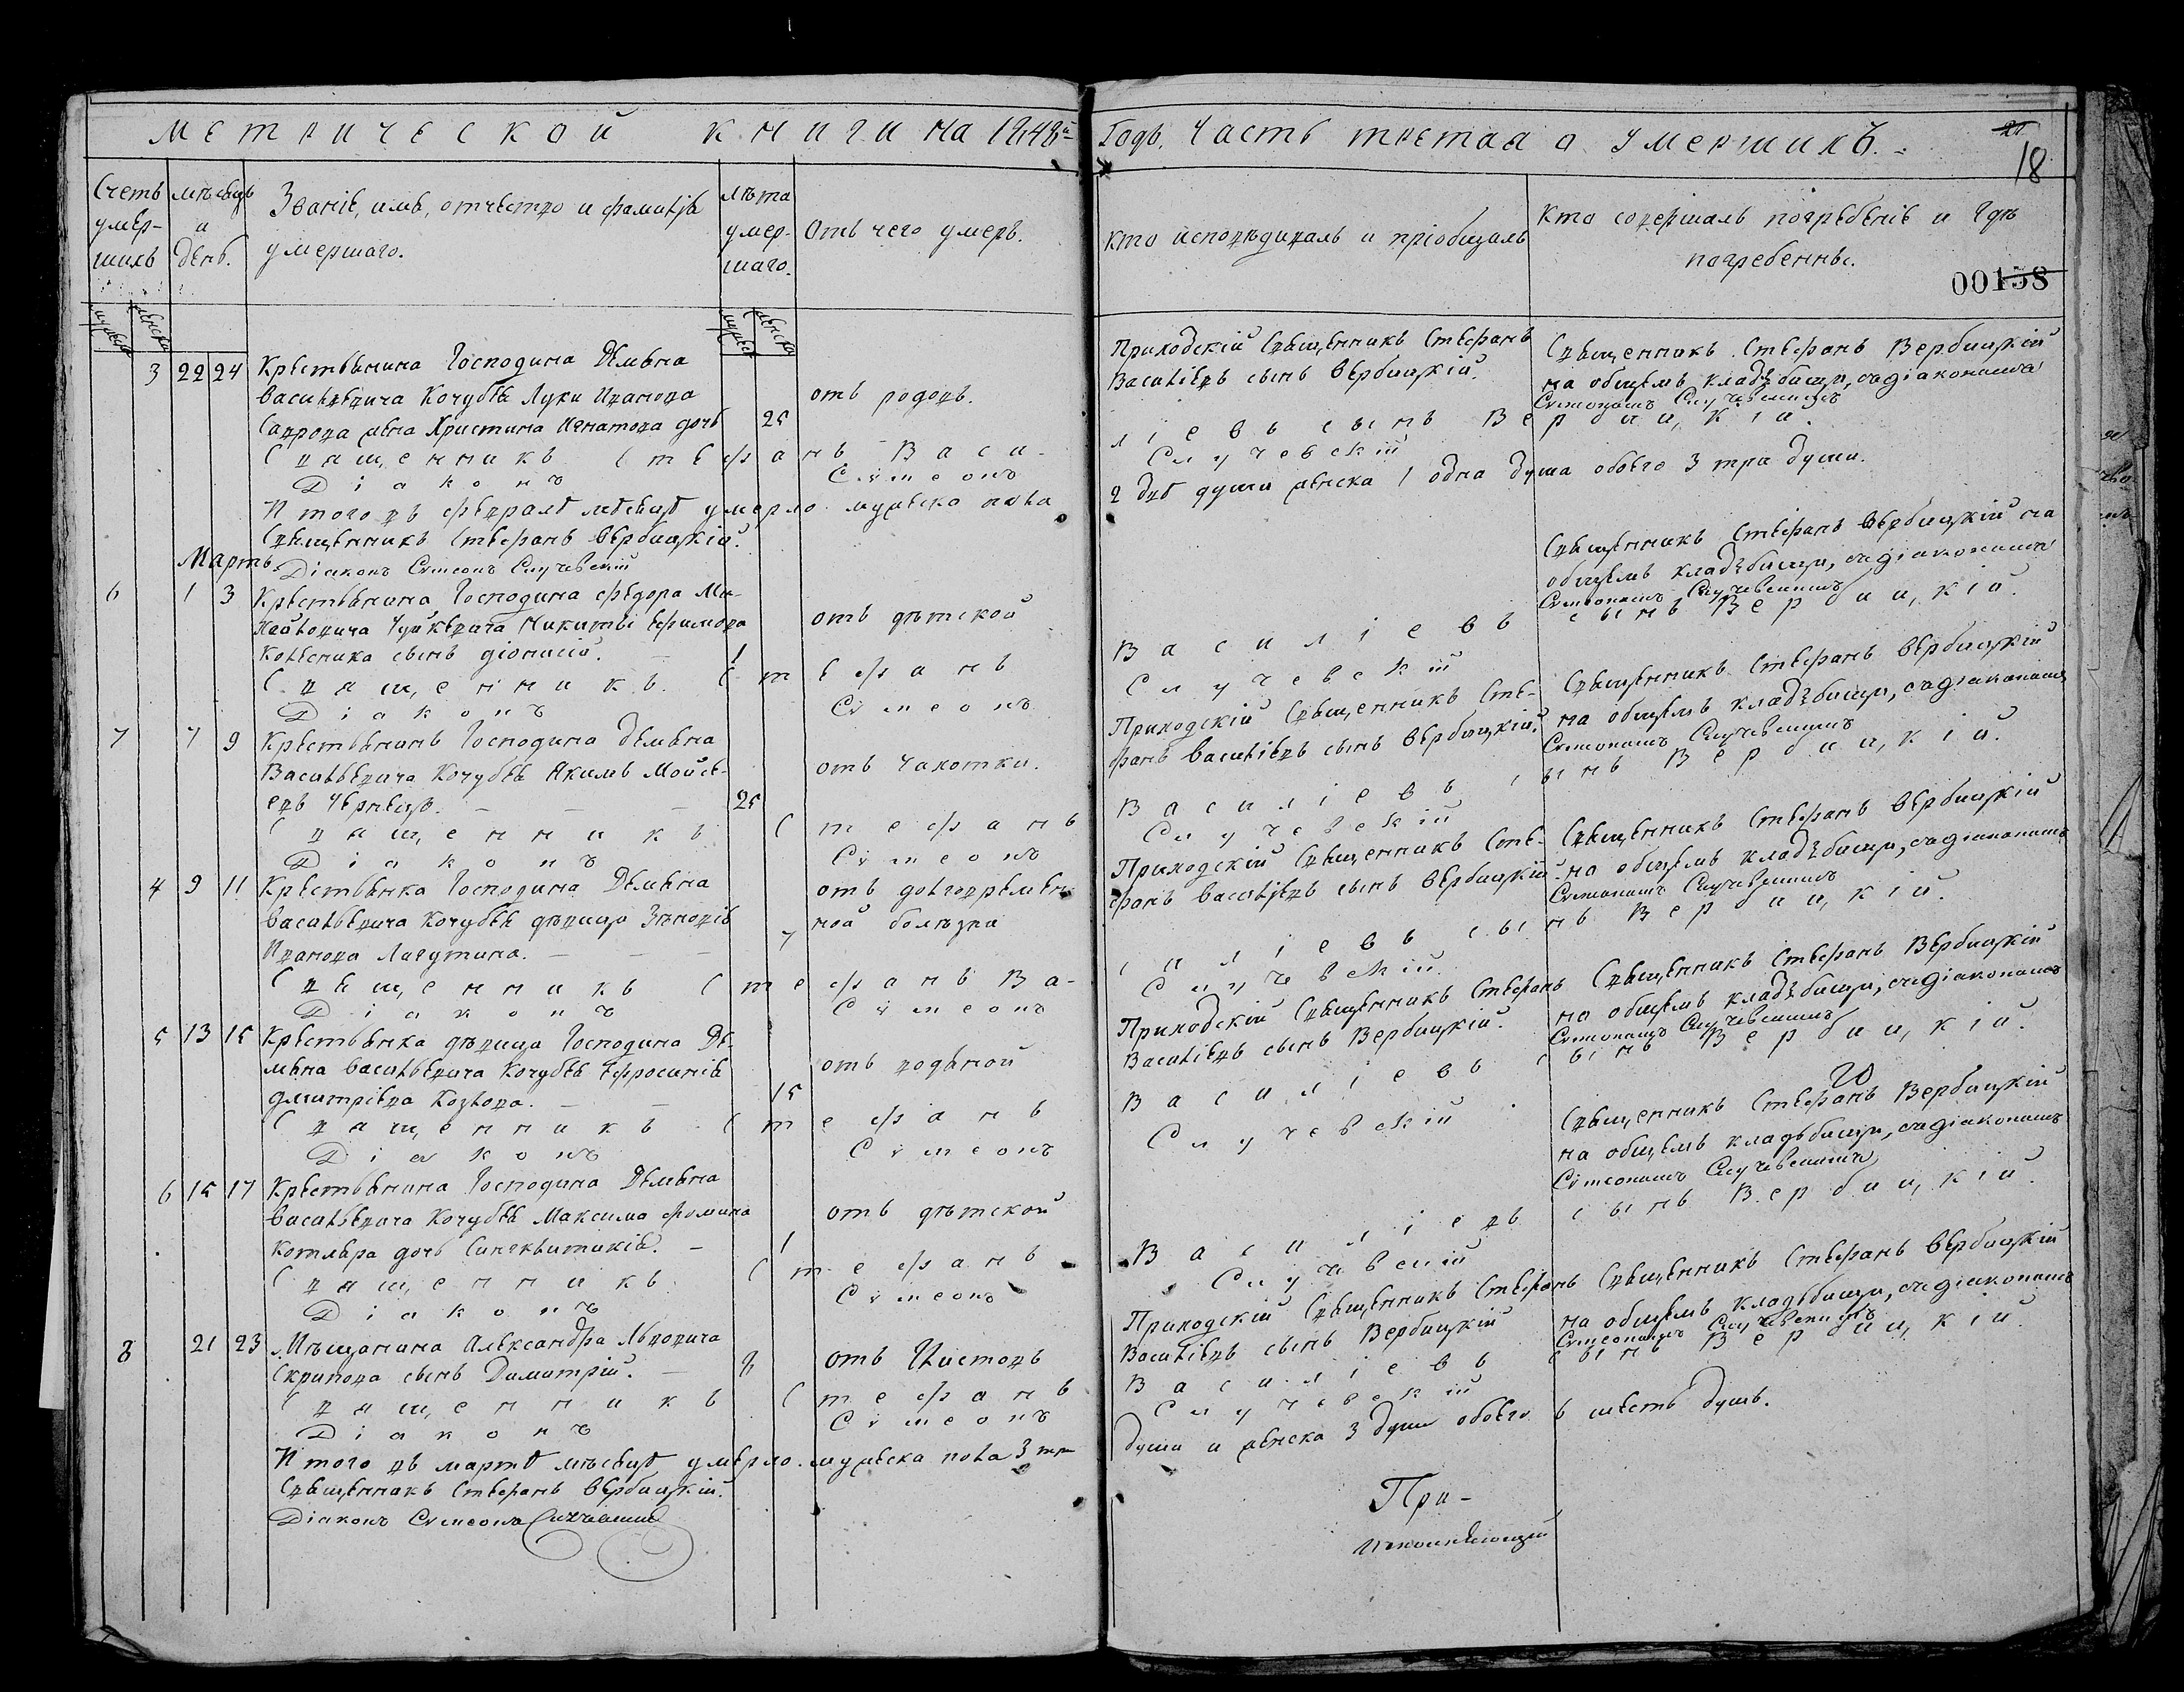 Метрической книги на 1848й Годъ, Часть третая о умершихъ.
21
18
Счетъ умер-шихъ
мѣсяць и день.
Званіе, имя, отчество и фамилія умершаго.
лѣта умер-шаго.
Отъ чего умеръ.
кто исповѣдивалъ и пріобщалъ
Кто совершалъ погребеніе и гдѣ погребенны.
00158
мужеска женска
мужеска женска
3 22 24 Крестьянина Господина Демьяна
Васильевича Кочубея Луки Иванова
Саврова жена Христина Игнатова дочь 25 отъ родовъ.
Приходскій Священникъ Стефанъ
Василіевъ сынъ Вербицкій.
Священникъ Стефанъ Вербицкій
на общемъ кладѣбищи, съ діакономъ
Сѵмеономъ Случевскимъ
Священникъ Стефанъ Васи-
ліевъ сынъ Вербицкій.
Діаконъ Сѵмеонъ Случевскій
Итого въ февралѣ мѣсяцѣ умерло мужеска пола
2 двѣ души женска 1 одна душа обоего 3 три души.
Священникъ Стефанъ Вербицкій.
Діаконъ Сѵмеонъ Случевскій
Мартъ
6 1 3 Крестьянина Господина Федора Ми-
хайловича Чуйкевича Никиты Ефимова
Колесника сынъ Діонисій. 1 отъ дѣтской
Священникъ Стефанъ Вербицкій на
общемъ кладѣбищи, съ діакономъ
Сѵмеономъ Случевскимъ
Священникъ Стефанъ Василіевъ сынъ Вербицкій.
Діаконъ Сѵмеонъ Случевскій
7 7 9 Крестьянинъ Господина Демьяна
Васильевича Кочубея Якимъ Мойсе-
евъ Чернецъ. 25 отъ чахотки.
Приходскій Священникъ Сте-
фанъ Василіевъ сынъ Вербицкій.
Священникъ Стефанъ Вербицкій
на общемъ кладѣбищи, съ діакономъ
Сѵмеономъ Случевскимъ
Священникъ Стефанъ Василіевъ сынъ Вербицкій.
Діаконъ Сѵмеонъ Случевскій
4 9 11 Крестьянка Господина Демьяна
Васильевича Кочубея дѣвица Зѣновія
Иванова Лагутина. 7 отъ долговремен-
ной болѣзни
Приходскій Священникъ Сте-
фанъ Василіевъ сынъ Вербицкій.
Священникъ Стефанъ Вербицкій
на общемъ кладѣбищи, съ діакономъ
Сѵмеономъ Случевскимъ
Священникъ Стефанъ Ва-
силіевъ сынъ Вербицкій.
Діаконъ Сѵмеонъ Случевскій.
5 13 15 Крестьянка дѣвица Господина Де-
мьяна Васильевича Кочубея Ефросинія
Дмитріева Козлова. 15 отъ водяной
Приходскій Священникъ Стефанъ
Василіевъ сынъ Вербицкій.
Священникъ Стефанъ Вербицкій
на общемъ кладѣбищи, съ діакономъ
Сѵмеономъ Случевскимъ
Священникъ Стефанъ Василіевъ сынъ Вербицкій.
Діаконъ Сѵмеонъ Случевскій
6 15 17 Крестьянина Господина Демьяна
Васильевича Кочубея Максима Фомина
Котляра дочь Синкликитикія. 1 отъ дѣтской
Священникъ Стефанъ Вербицкій
на общемъ кладьбищи, съ діакономъ
Сѵмеономъ Случевскимъ
Священникъ Стефанъ Василіевъ сынъ Вербицкій.
Діаконъ Сѵмеонъ Случевскій
8 21 23 Мѣщанина Александра Львовича
Скрипова сынъ Димитрій. 8
Приходскій Священникъ Стефанъ
Василіевъ сынъ Вербицкій
Священникъ Стефанъ Вербицкій
на общемъ кладьбищи, съ діакономъ
Сѵмеономъ Случевскимъ
Священникъ Стефанъ Василіевъ сынъ Вербицкій.
Діаконъ Сѵмеонъ Случевскій
Итого въ мартѣ мѣсяцѣ умерло мужеска пола 3 три
души и женска 3 души обоего 6 шесть душъ.
Священникъ Стефанъ Вербицкій.
Діаконъ Сѵмеонъ Случевскій
При-